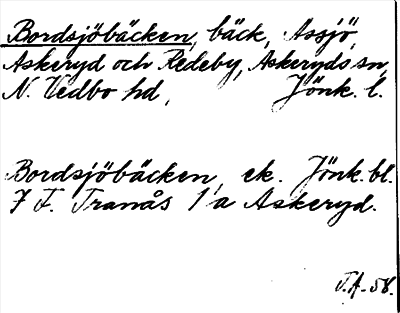 Bordsjöbäcken, bäck, Assjö,
Askeryd och Redeby, Askeryds sn,
N. Vedbo hd, Jönk. l.
Bordsjöbäcken, ek. Jönk. bl.
7 F. Tranås 1 a Askeryd.
T.A. 58.